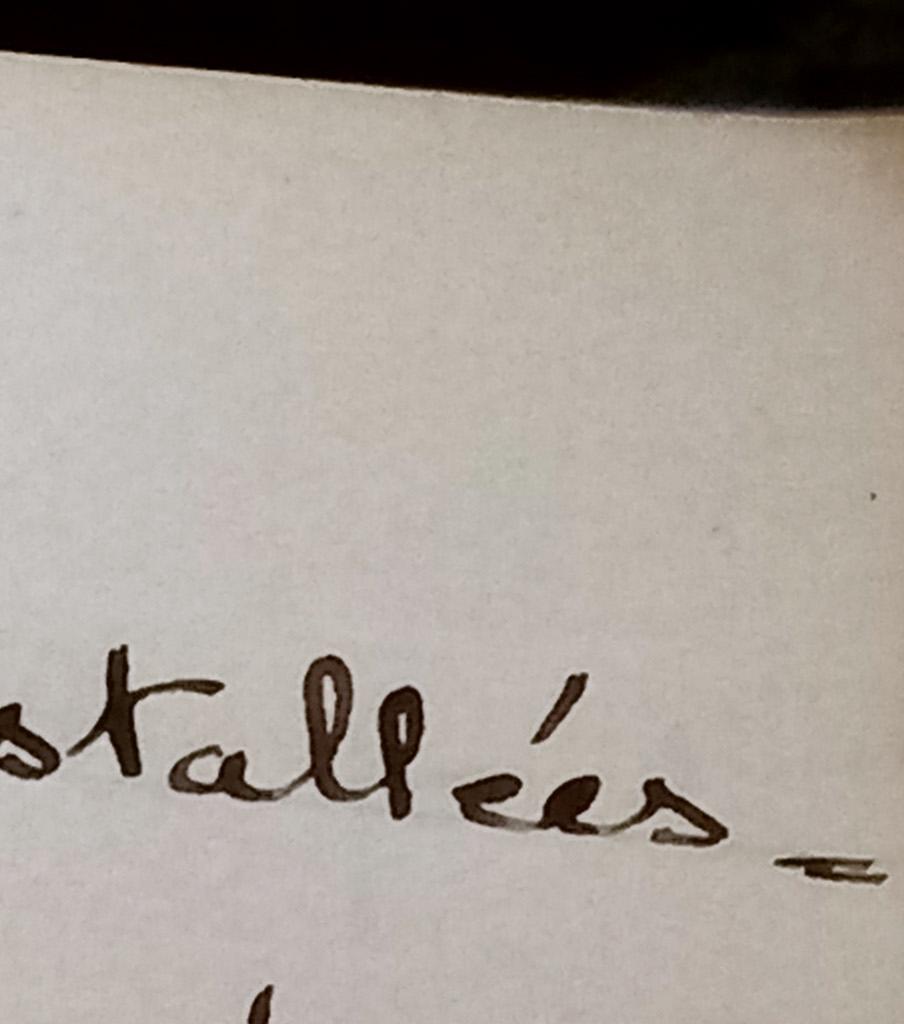 stallées -